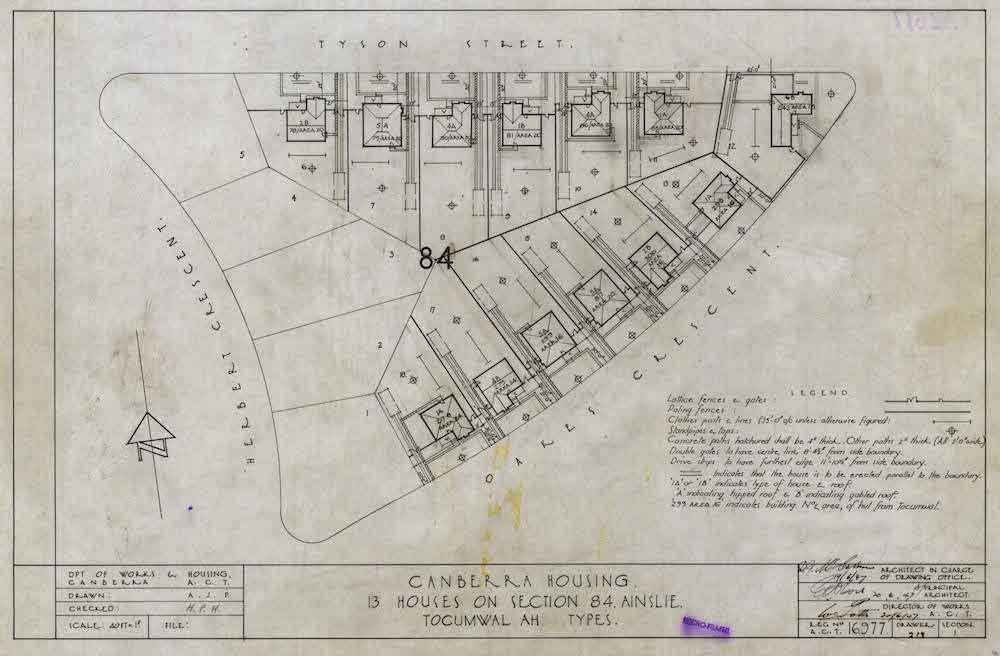 TYSON STREET.
HERBERT CRESCENT.
OARES CRESCENT.
84
1B
78/AREA 20
5/A
79/AREA 20
4A
80/AREA 20
1B
81/AREA 20
4A
1A
242/AREA 15
1A
298
1B
5A
81
AREA 20
5A
299
AREA 16
4B
1A
278
1
2
3
4
5
6
7
8
9
10
11
12
13
14
16
17
18
LEGEND
Lattice fences & gates :
Paling fences :
Clothes posts & lines (35'-0" o/c unless otherwise figured:
Standpipes & taps:
Concrete paths hatchured shall be 4" thick. Other paths 2" thick (All 2'-0" wide)
Double gates to have centre line 8'-4½" from side boundary.
Drive strips to have furthest edge 11'-10½" from side boundary.
Indicates that the house is to be erected parallel to the boundary.
'1A' or '1B' indicates type of house & roof.
'A' indicating hipped roof & 'B' indicating gabled roof.
'299 AREA 16 indicates building Nº & area, of hut from Tocumwal.
DPT OF WORKS & HOUSING,
CANBERRA A.C.T.
DRAWN: A.J.P.
CHECKED: H.P.H.
SCALE: 40FT=1" FILE:
CANBERRA HOUSING.
13 HOUSES ON SECTION 84, AINSLIE.
TOCUMWAL AH TYPES.
ARCHITECT IN CHARGE
19/6/47 OF DRAWING OFFICE.
PRINCIPAL
20.6.47 ARCHITECT.
DIRECTOR OF WORKS
20/6/47 A.C.T.
REG Nº
A.C.T. 16977
DRAWER
SECTION.
1
MICRO-FILMED